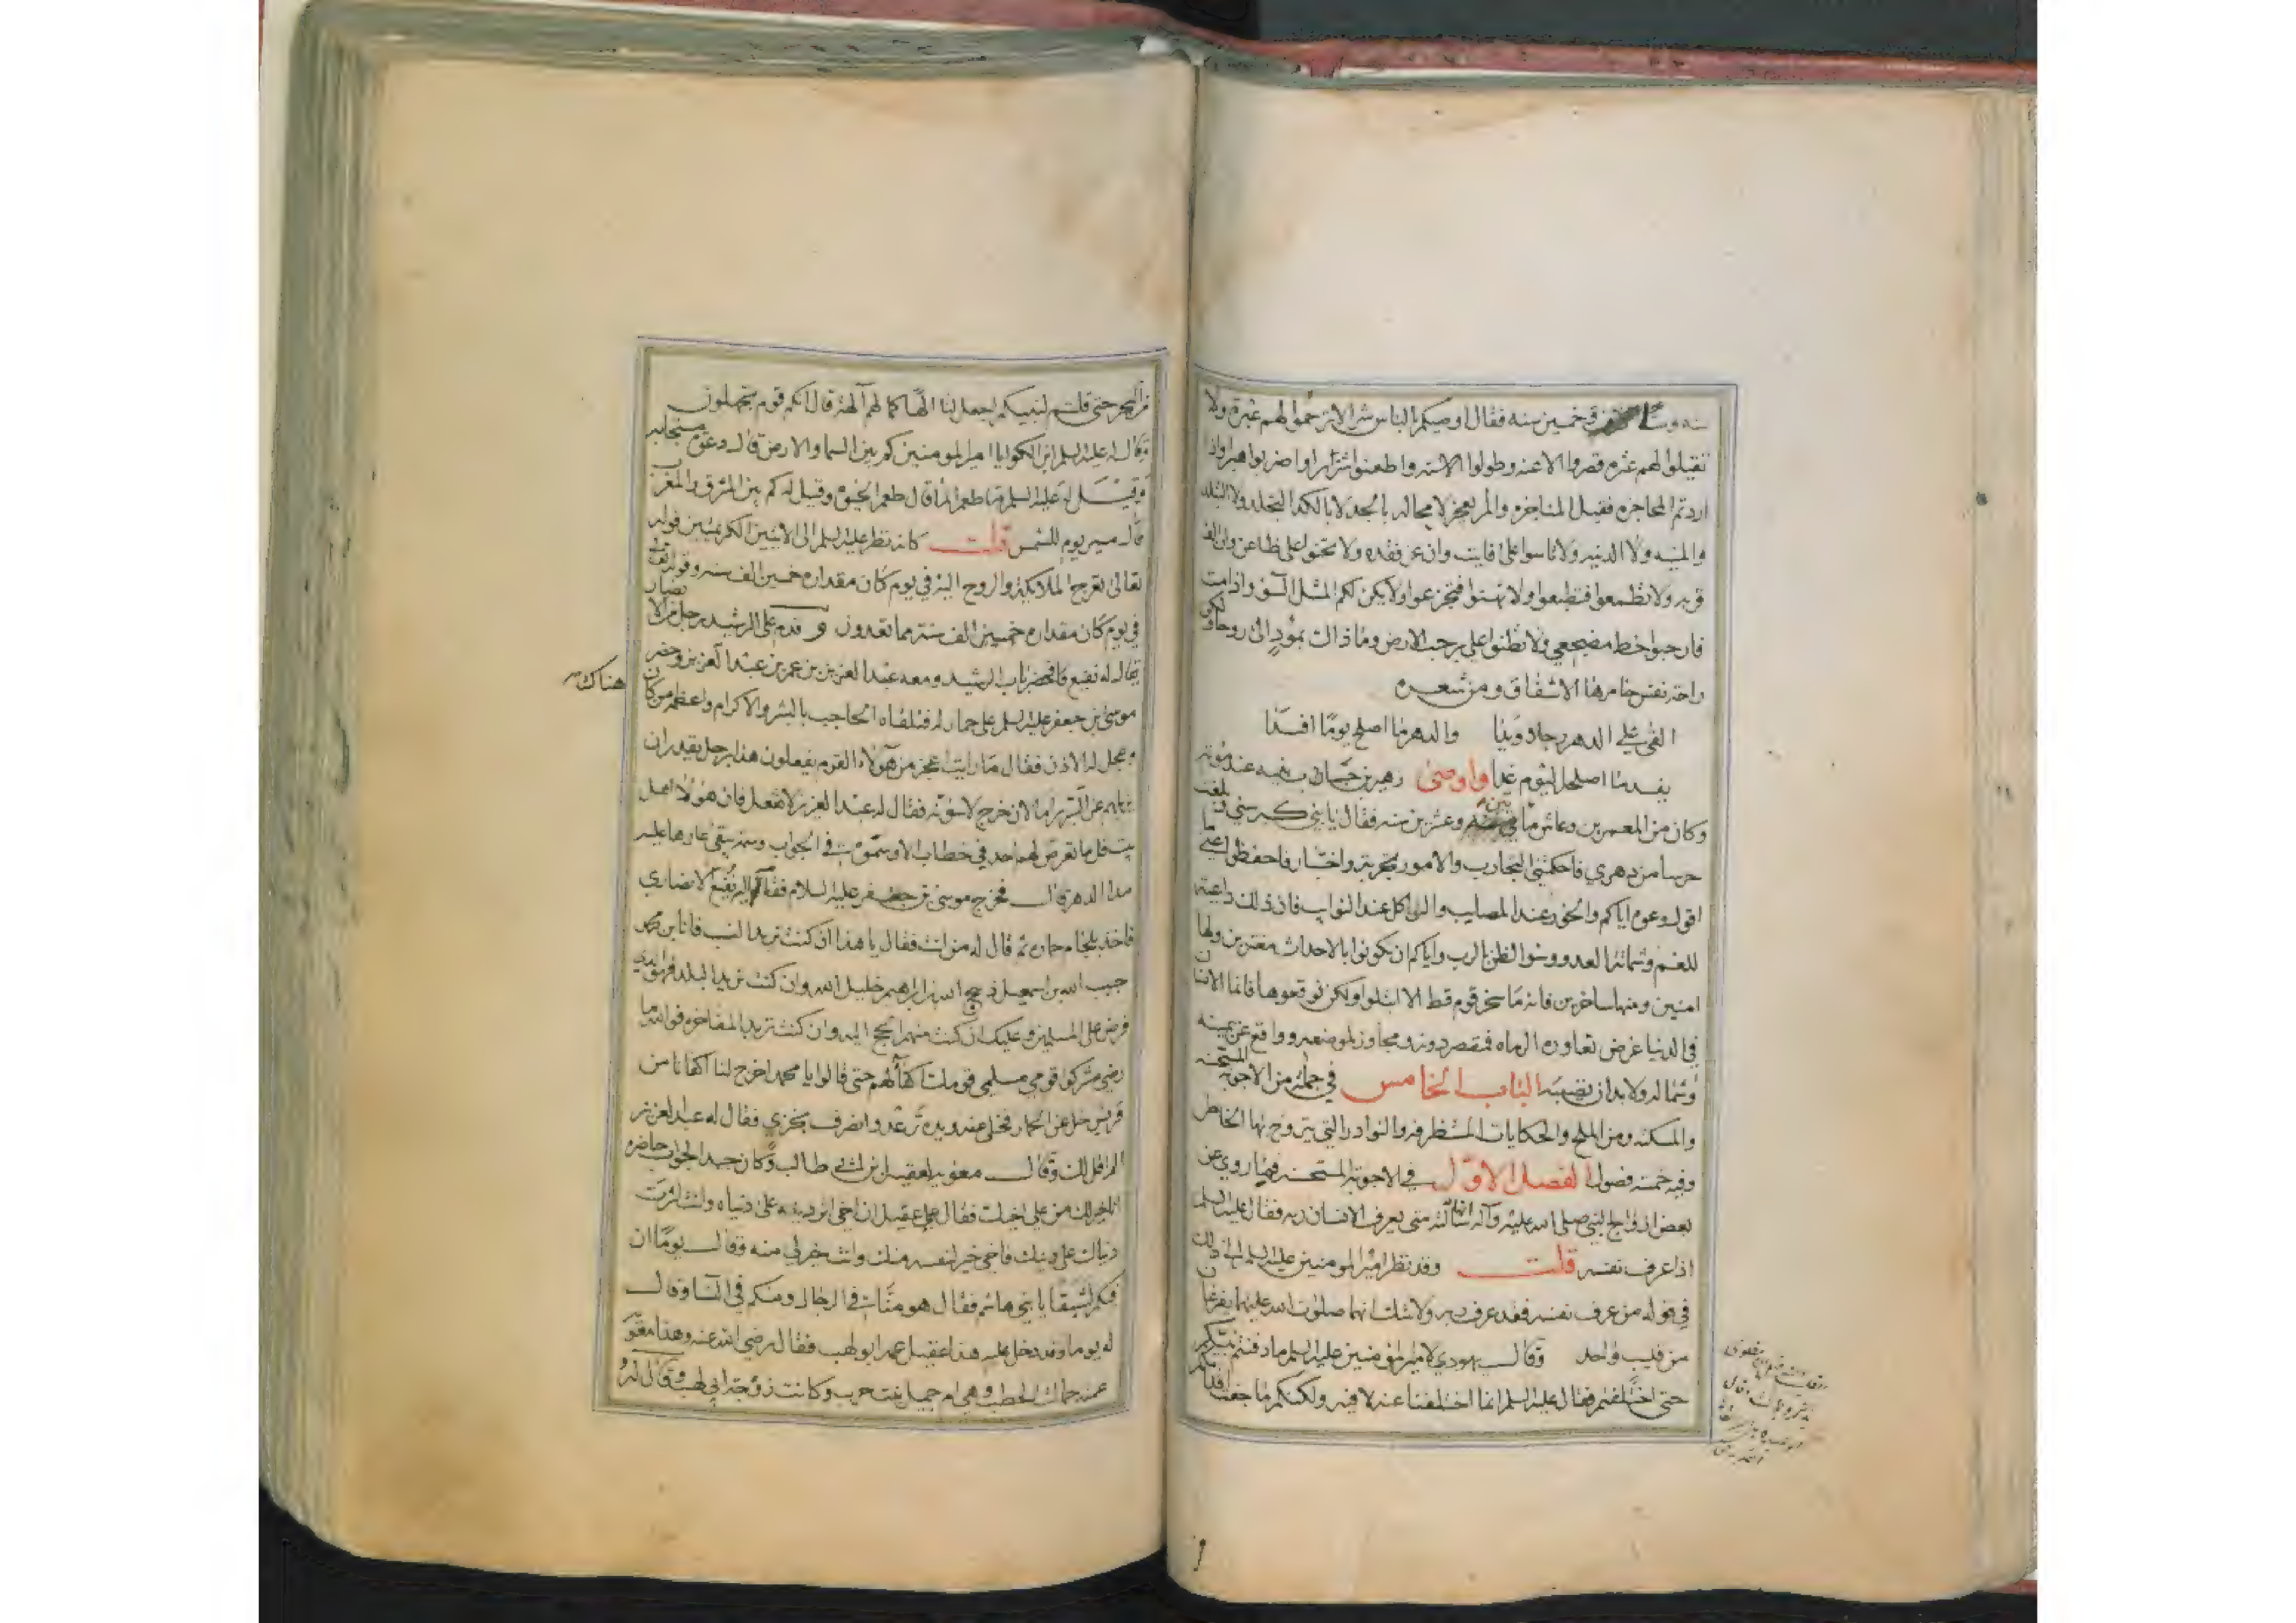 سنه وستا وخمسين سنه فقال اوصيكم بالناس شرا لا ترحموا لهم عبرة ولا
تقيلوا لهم عثره قصروا الاعنه وطولوا الاسنه واطعنوا شزرا واضربوا هبرا واذا
اردتم المحاجزه فقبل المناجزه والمرء يعجز لا محاله بالجد لا بالكد التجلد ولا التبلد
والمنيه ولا الدنيه ولا تاسوا على فايت وان عز فقده ولا تحنوا على ظاعن وان الف
قربه ولا تطمعوا فتطبعوا ولا تهنوا فتجزعوا ولا يكن لكم المثل السوء واذا مت
فارحبوا خط مضجعي ولا تظنوا علي برحب الارض وما ذاك بمؤد الى روحا ولكن
راحة نفس خامرها الاشفاق ومن شعره
القى علي الدهر رجلا ويدا والدهر ما اصلح يوما افسدا
يفسد ما اصلحه اليوم غدا واوصى زهير بن جناب بنيه عند موته
وكان من المعمرين وعاش مأتي سنه وعشرين سنه فقال يا بني كبر سني وبلغت
حرسا من دهري فاحكمتني التجارب والامور تجربة واختبار فاحفظوا عني ما
اقول وعوه اياكم والخور عند المصايب والتواكل عند النوايب فان ذلك داعية
للغم وشماتة العدو وسوء الظن بالرب واياكم ان تكونوا بالاحداث مغترين ولها
امنين ومنها ساخرين فانه ما سخر قوم قط الا ابتلوا ولكن توقعوها فانما الانسان
في الدنيا غرض تعاوره الرماه فمقصر دونه ومجاوز لموضعه وواقع عن يمينه
وشماله ولا بد ان تصيبه الباب الخامس في جملة من الاجوبة المستحسنه
والمسكته ومن الملح والحكايات المستظرفه والنوادر التي يتروح بها الخاطر
وفيه خمسة فصول الفصل الاول في الاجوبة المستحسنه فيما روي عن
بعض ازواج النبي صلى الله عليه وآله انها سألته متى يعرف الانسان ربه فقال عليه السلم
اذا عرف نفسه قلت وقد نظر امير المومنين عليه السلم الى ذلك
في قوله من عرف نفسه فقد عرف ربه ولا شك انهما صلوات الله عليهما يفرغان
من قليب واحد وقال يهودي لامير المؤمنين عليه السلم ما دفنتم نبيكم
حتى اختلفتم فقال عليه السلم انما اختلفنا عنه لا فيه ولكنكم ما جفت اقدامكم
من البحر حتى قلتم لنبيكم اجعل لنا الها كما لهم آلهة قال انكم قوم تجهلون
وقال له عليه السلم ابن الكوا يا امير المومنين كم بين السما والارض قال دعوة مستجابه
وقيل له عليه السلم ما طعم الماء قال طعم الحيوة وقيل له كم بين المشرق والمغرب
قال مسير يوم للشمس قلت كانه نظر عليه السلم الى الايتين الكريمتين قوله
تعالى تعرج الملائكة والروح اليه في يوم كان مقداره خمسين الف سنه وقوله تعالى
في يوم كان مقداره خمسين الف سنة مما تعدون وقدم على الرشيد رجل من الانصار
يقال له نفيع فحضر باب الرشيد ومعه عبد العزيز بن عمر بن عبد العزيز وحضر
هناك
موسى بن جعفر عليه السلم على حمار له فتلقاه الحاجب بالبشر والاكرام واعظمه من كان
وعجل له الاذن فقال ما رايت اعجز من هؤلاء القوم يفعلون هذا برجل يقدر ان
يزيلهم عن السرير اما لان خرج لاسؤنه فقال له عبد العزيز لا تفعل فان هؤلاء اهل
بيت قل ما تعرض لهم احد في خطاب الا وسموه في الجواب وسمة يبقى عارها عليه
مدا الدهر قال فخرج موسى بن جعفر عليه السلام فقام اليه نفيع الانصاري
فاخذ بلجام حماره ثم قال له من انت فقال يا هذا ان كنت تريد النسب فانا ابن محمد
حبيب الله بن اسمعيل ذبيح الله بن ابراهيم خليل الله وان كنت تريد البلد فهو الذي
فرض على المسلمين وعليك ان كنت منهم الحج اليه وان كنت تريد المفاخره فوالله ما
رضي مشركوا قومي مسلمي قومك اكفاء لهم حتى قالوا يا محمد اخرج لنا اكفانا من
قريش خل عن الحمار فخلى عنه ويده ترعد وانصرف بخزي فقال له عبد العزيز
الم اقل لك وقال معويه لعقيل بن ابي طالب وكان جيد الجواب حاضره
انا خير لك من علي اخيك فقال عقيل ان اخي اثر دينه على دنياه وانت اثرت
دنياك على دينك فاخي خير لنفسه منك وانت خير لي منه وقال يوما ان
فيكم لشبقا يا بني هاشم فقال هو منا في الرجال ومنكم في النسا وقال
له يوما وقد دخل عليه هذا عقيل عمه ابو لهب فقال رضي الله عنه وهذا معويه
عمته حمالة الحطب وهي ام جميل بنت حرب وكانت زوجة ابي لهب وقال له